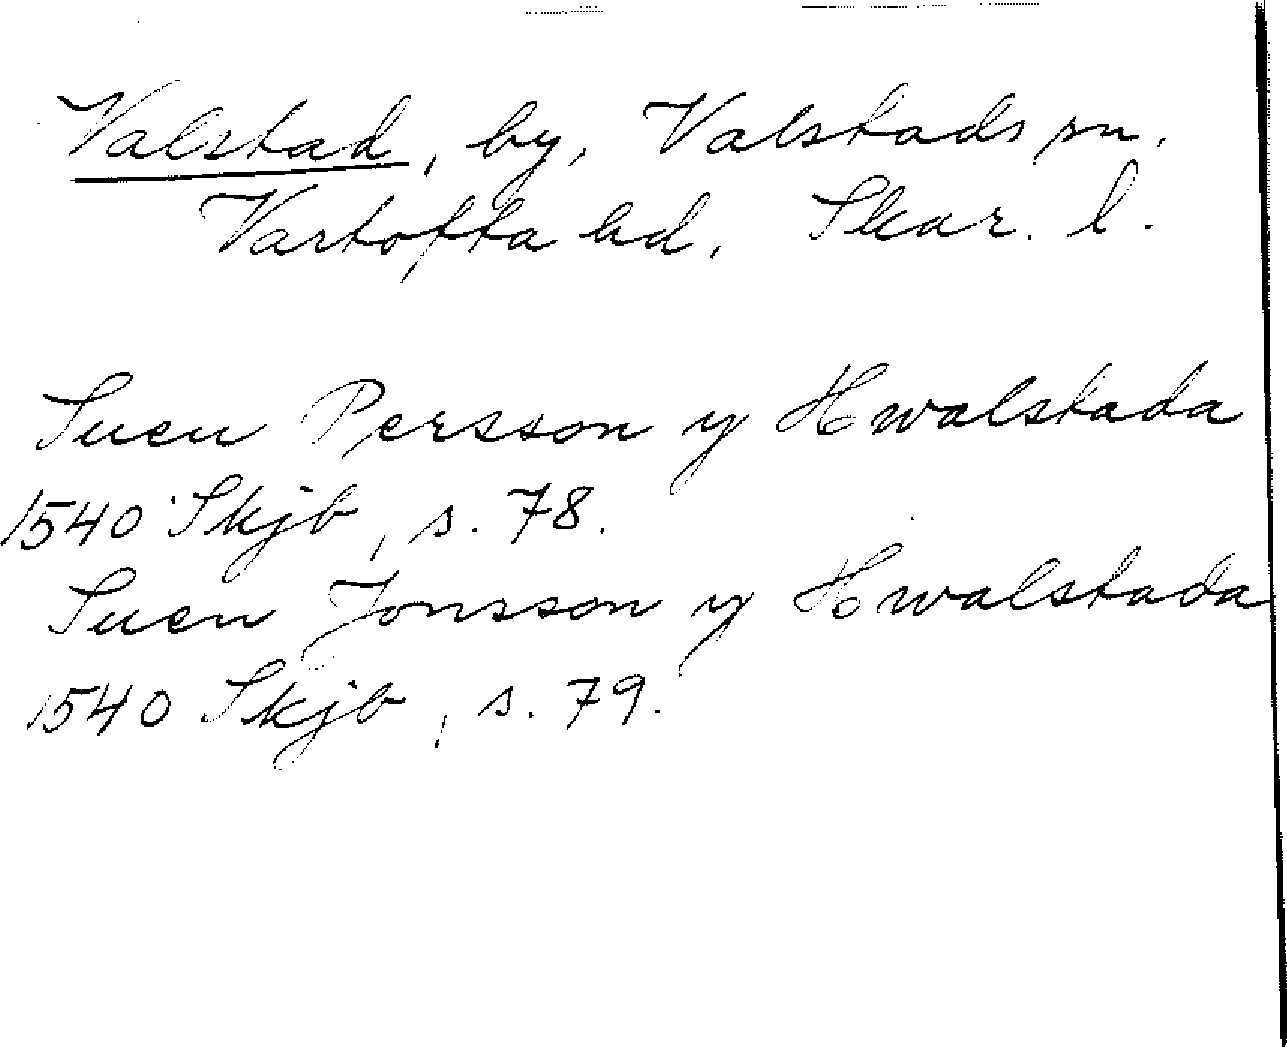 Valstad, by, Valstads sn,
Vartofta hd, Skar. l.
Suen Persson y Hwalstada
1540 Skjb, s. 78.
Suen Jonsson y Hwalstada
1540 Skjb, s. 79.